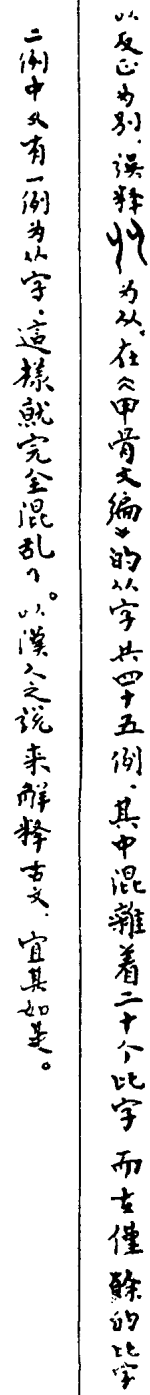 以反正为别，誤释为从。在《甲骨文编》的从字共四十五例，其中混雜着二十个比字 而在僅餘的比字
二例中又有一例为从字，這樣就完全混乱了。以漢人之説来解释古文，宜其如是。